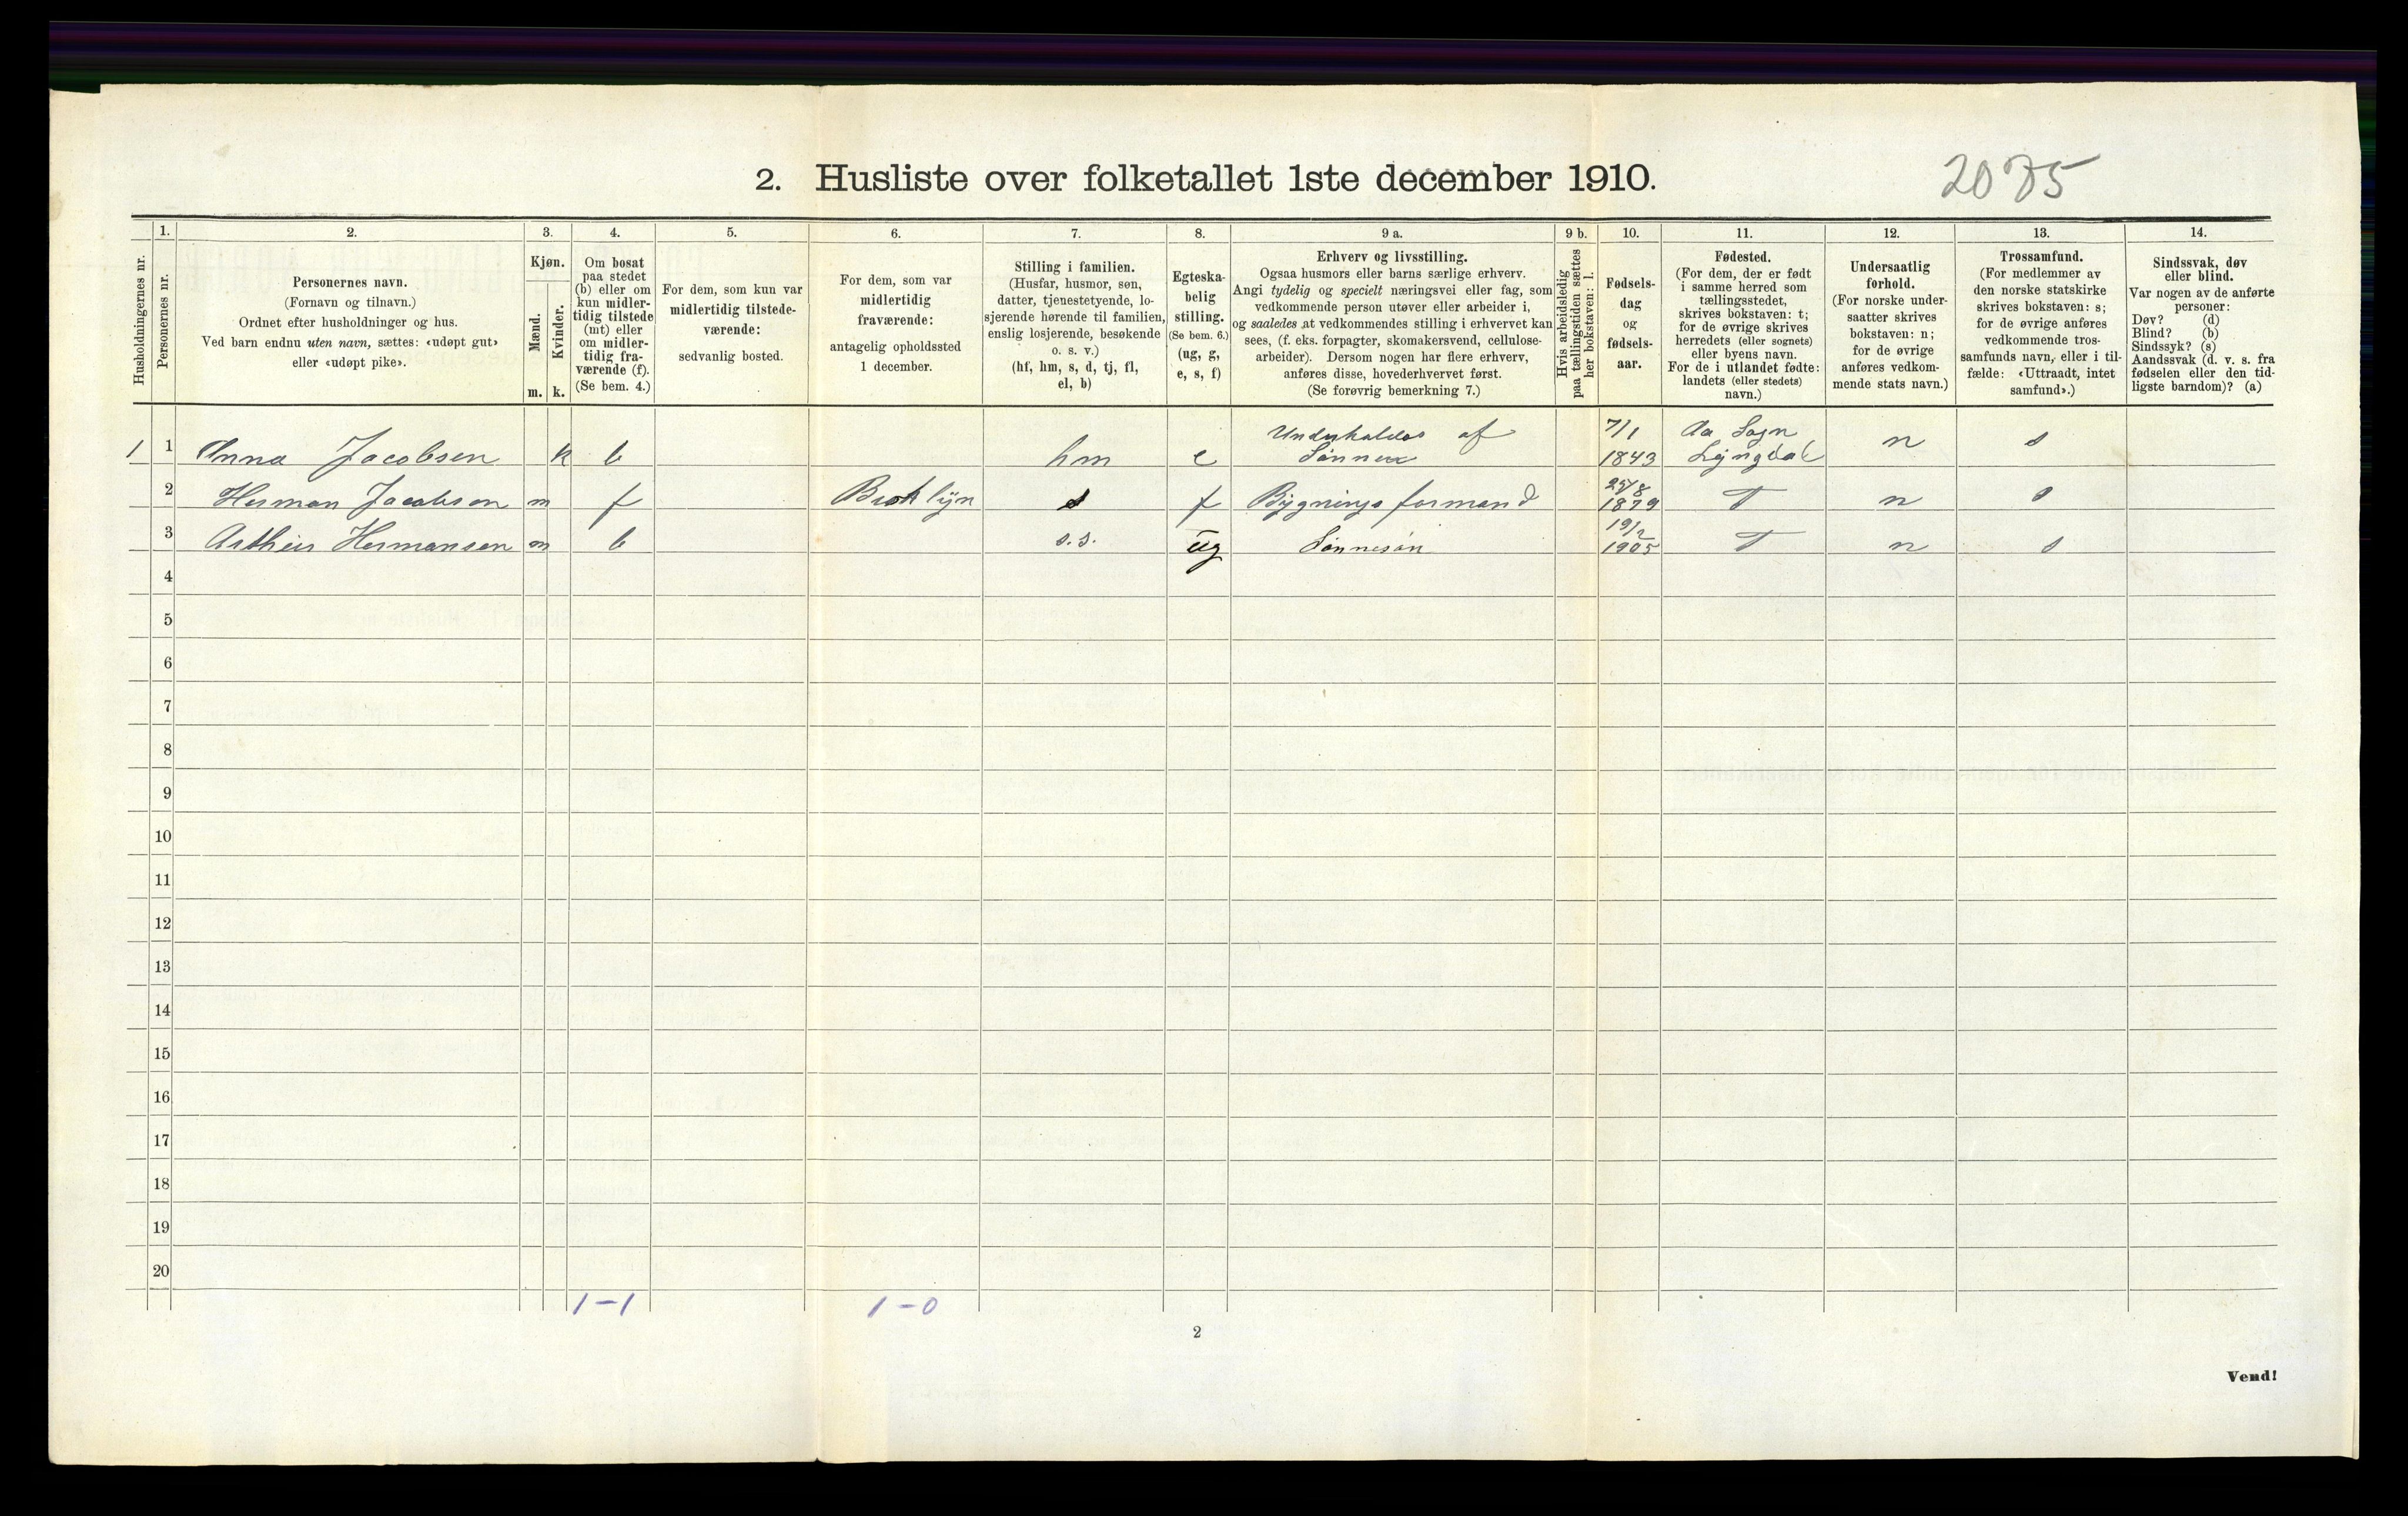 2. Husliste over folketallet 1ste december 1910.
2075
Husholdningernes nr.
1.
Personernes nr.
2.
Personernes navn.
(Fornavn og tilnavn.)
Ordnet efter husholdninger og hus.
Ved barn endnu uten navn, sættes: «udøpt gut»
eller «udøpt pike».
3.
Kjøn.
Mænd.
m.
Kvinder.
k.
4.
Om bosat
paa stedet
(b) eller om
kun midler-
tidig tilstede
(mt) eller
om midler-
tidig fra-
værende (f).
(Se bem. 4.)
5.
For dem, som kun var
midlertidig tilstede-
værende:
sedvanlig bosted.
6.
For dem, som var
midlertidig
fraværende:
antagelig opholdssted
1 december.
7.
Stilling i familien.
(Husfar, husmor, søn,
datter, tjenestetyende, lo-
sjerende hørende til familien,
enslig losjerende, besøkende
o. s. v.)
(hf, hm, s, d, tj, fl,
el, b)
8.
Egteska-
belig
stilling.
(Se bem. 6.)
(ug, g,
e, s, f)
9 a.
Erhverv og livsstilling.
Ogsaa husmors eller barns særlige erhverv.
Angi tydelig og specielt næringsvei eller fag, som
vedkommende person utøver eller arbeider i,
og saaledes at vedkommendes stilling i erhvervet kan
sees, (f. eks. forpagter, skomakersvend, cellulose-
arbeider). Dersom nogen har flere erhverv,
anføres disse, hovederhvervet først.
(Se forøvrig bemerkning 7.)
9 b.
Hvis arbeidsledig
paa tællingstiden sættes
her bokstaven: l.
10.
Fødsels-
dag
og
fødsels-
aar.
11.
Fødested.
(For dem, der er født
i samme herred som
tællingsstedet,
skrives bokstaven: t;
for de øvrige skrives
herredets (eller sognets)
eller byens navn.
For de i utlandet fødte:
landets (eller stedets)
navn.)
12.
Undersaatlig
forhold.
(For norske under-
saatter skrives
bokstaven: n;
for de øvrige
anføres vedkom-
mende stats navn.)
13.
Trossamfund.
(For medlemmer av
den norske statskirke
skrives bokstaven: s;
for de øvrige anføres
vedkommende tros-
samfunds navn, eller i til-
fælde: «Uttraadt, intet
samfund».)
14.
Sindssvak, døv
eller blind.
Var nogen av de anførte
personer:
Døv? (d)
Blind? (b)
Sindssyk? (s)
Aandssvak (d. v. s. fra
fødselen eller den tid-
ligste barndom)? (a)
1 1 Anna Jacobsen k b hm e Underholdes af Sønner 7/1 1843 Aa Sogn Lyngdal n s
2 Herman Jacobsen m f Broklyn s f Bygnings formand 25/8 1879 T n s
3 Arthur Hermansen m b s.s. ug Sønnesøn 19/2 1905 T n s
4
5
6
7
8
9
10
11
12
13
14
15
16
17
18
19
20
1-1 1-0
2
Vend!